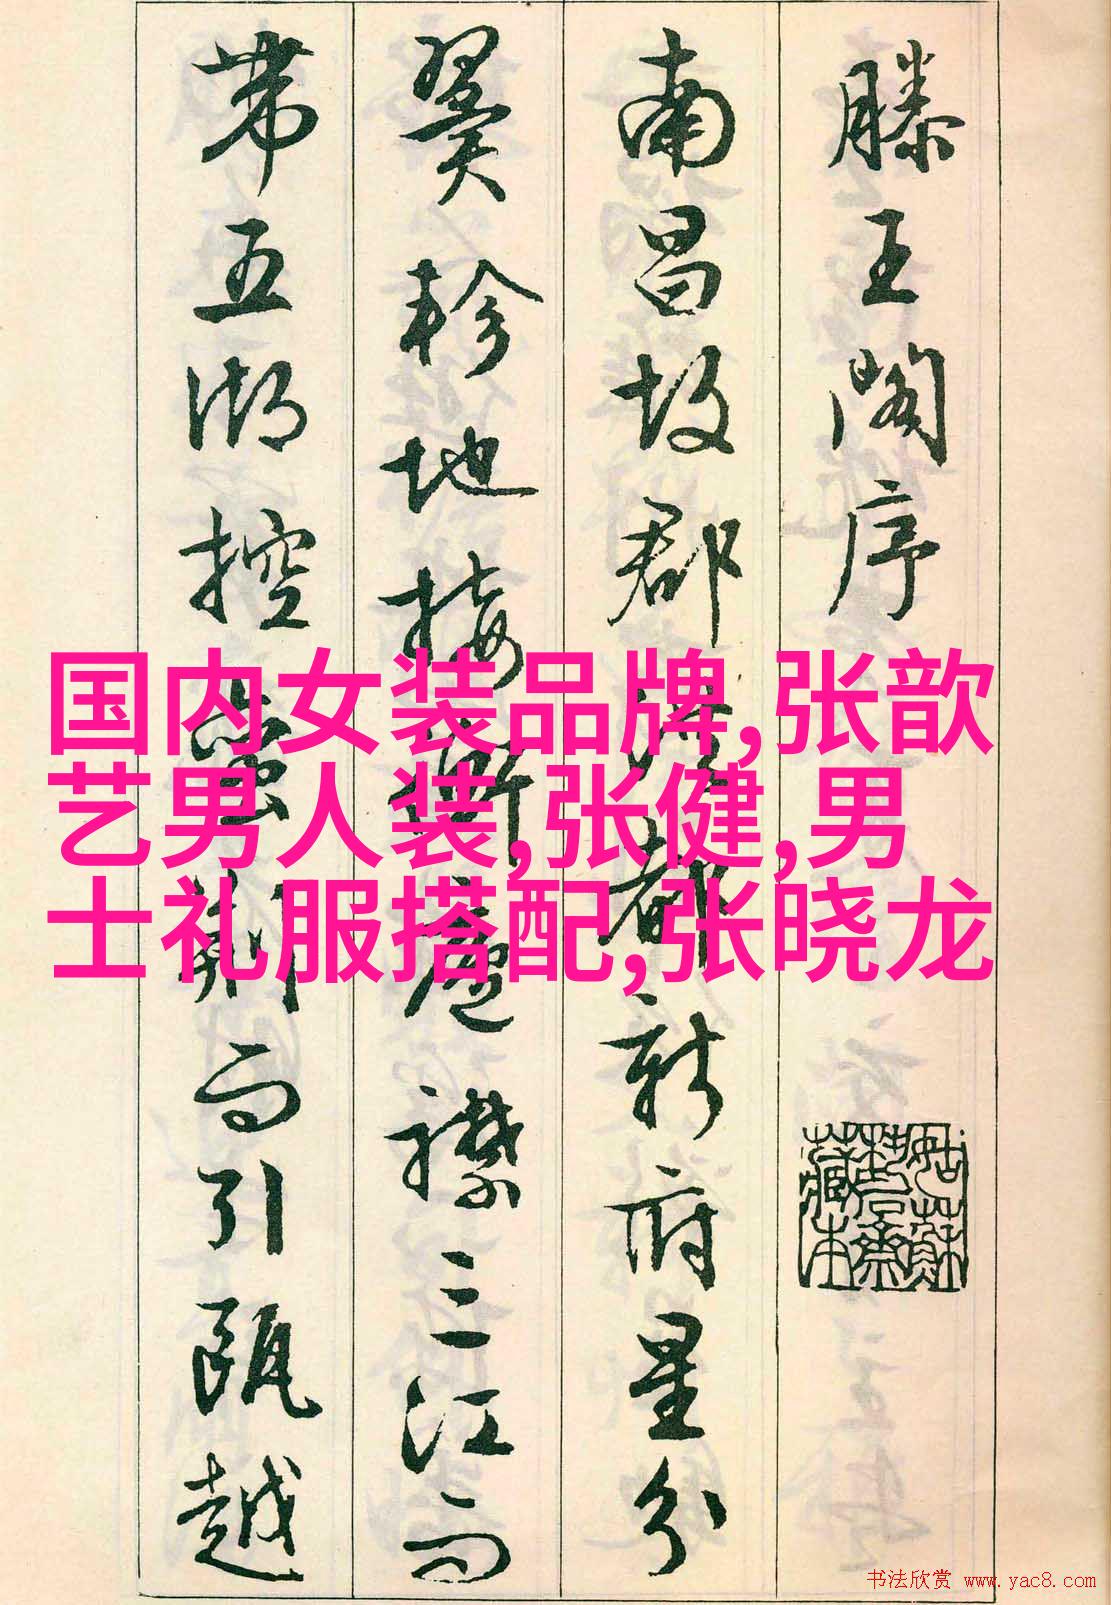 滕王閣序
南昌故郡洪都新府星分
翼軫地接衡廬襟三江而
帶五湖控蠻荊而引甌越
姑蘇
藏本
国内女装品牌,张歆
艺男人装,张健,男
士礼服搭配,张晓龙
书法欣赏 www.yac8.com